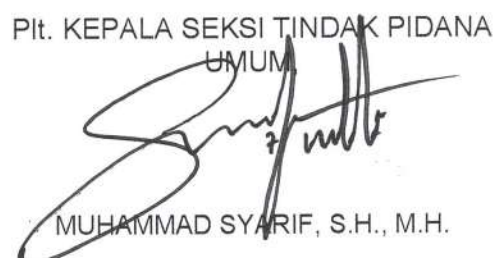 Plt. KEPALA SEKSI TINDAK PIDANA
UMUM
MUHAMMAD SYARIF, S.H., M.H.